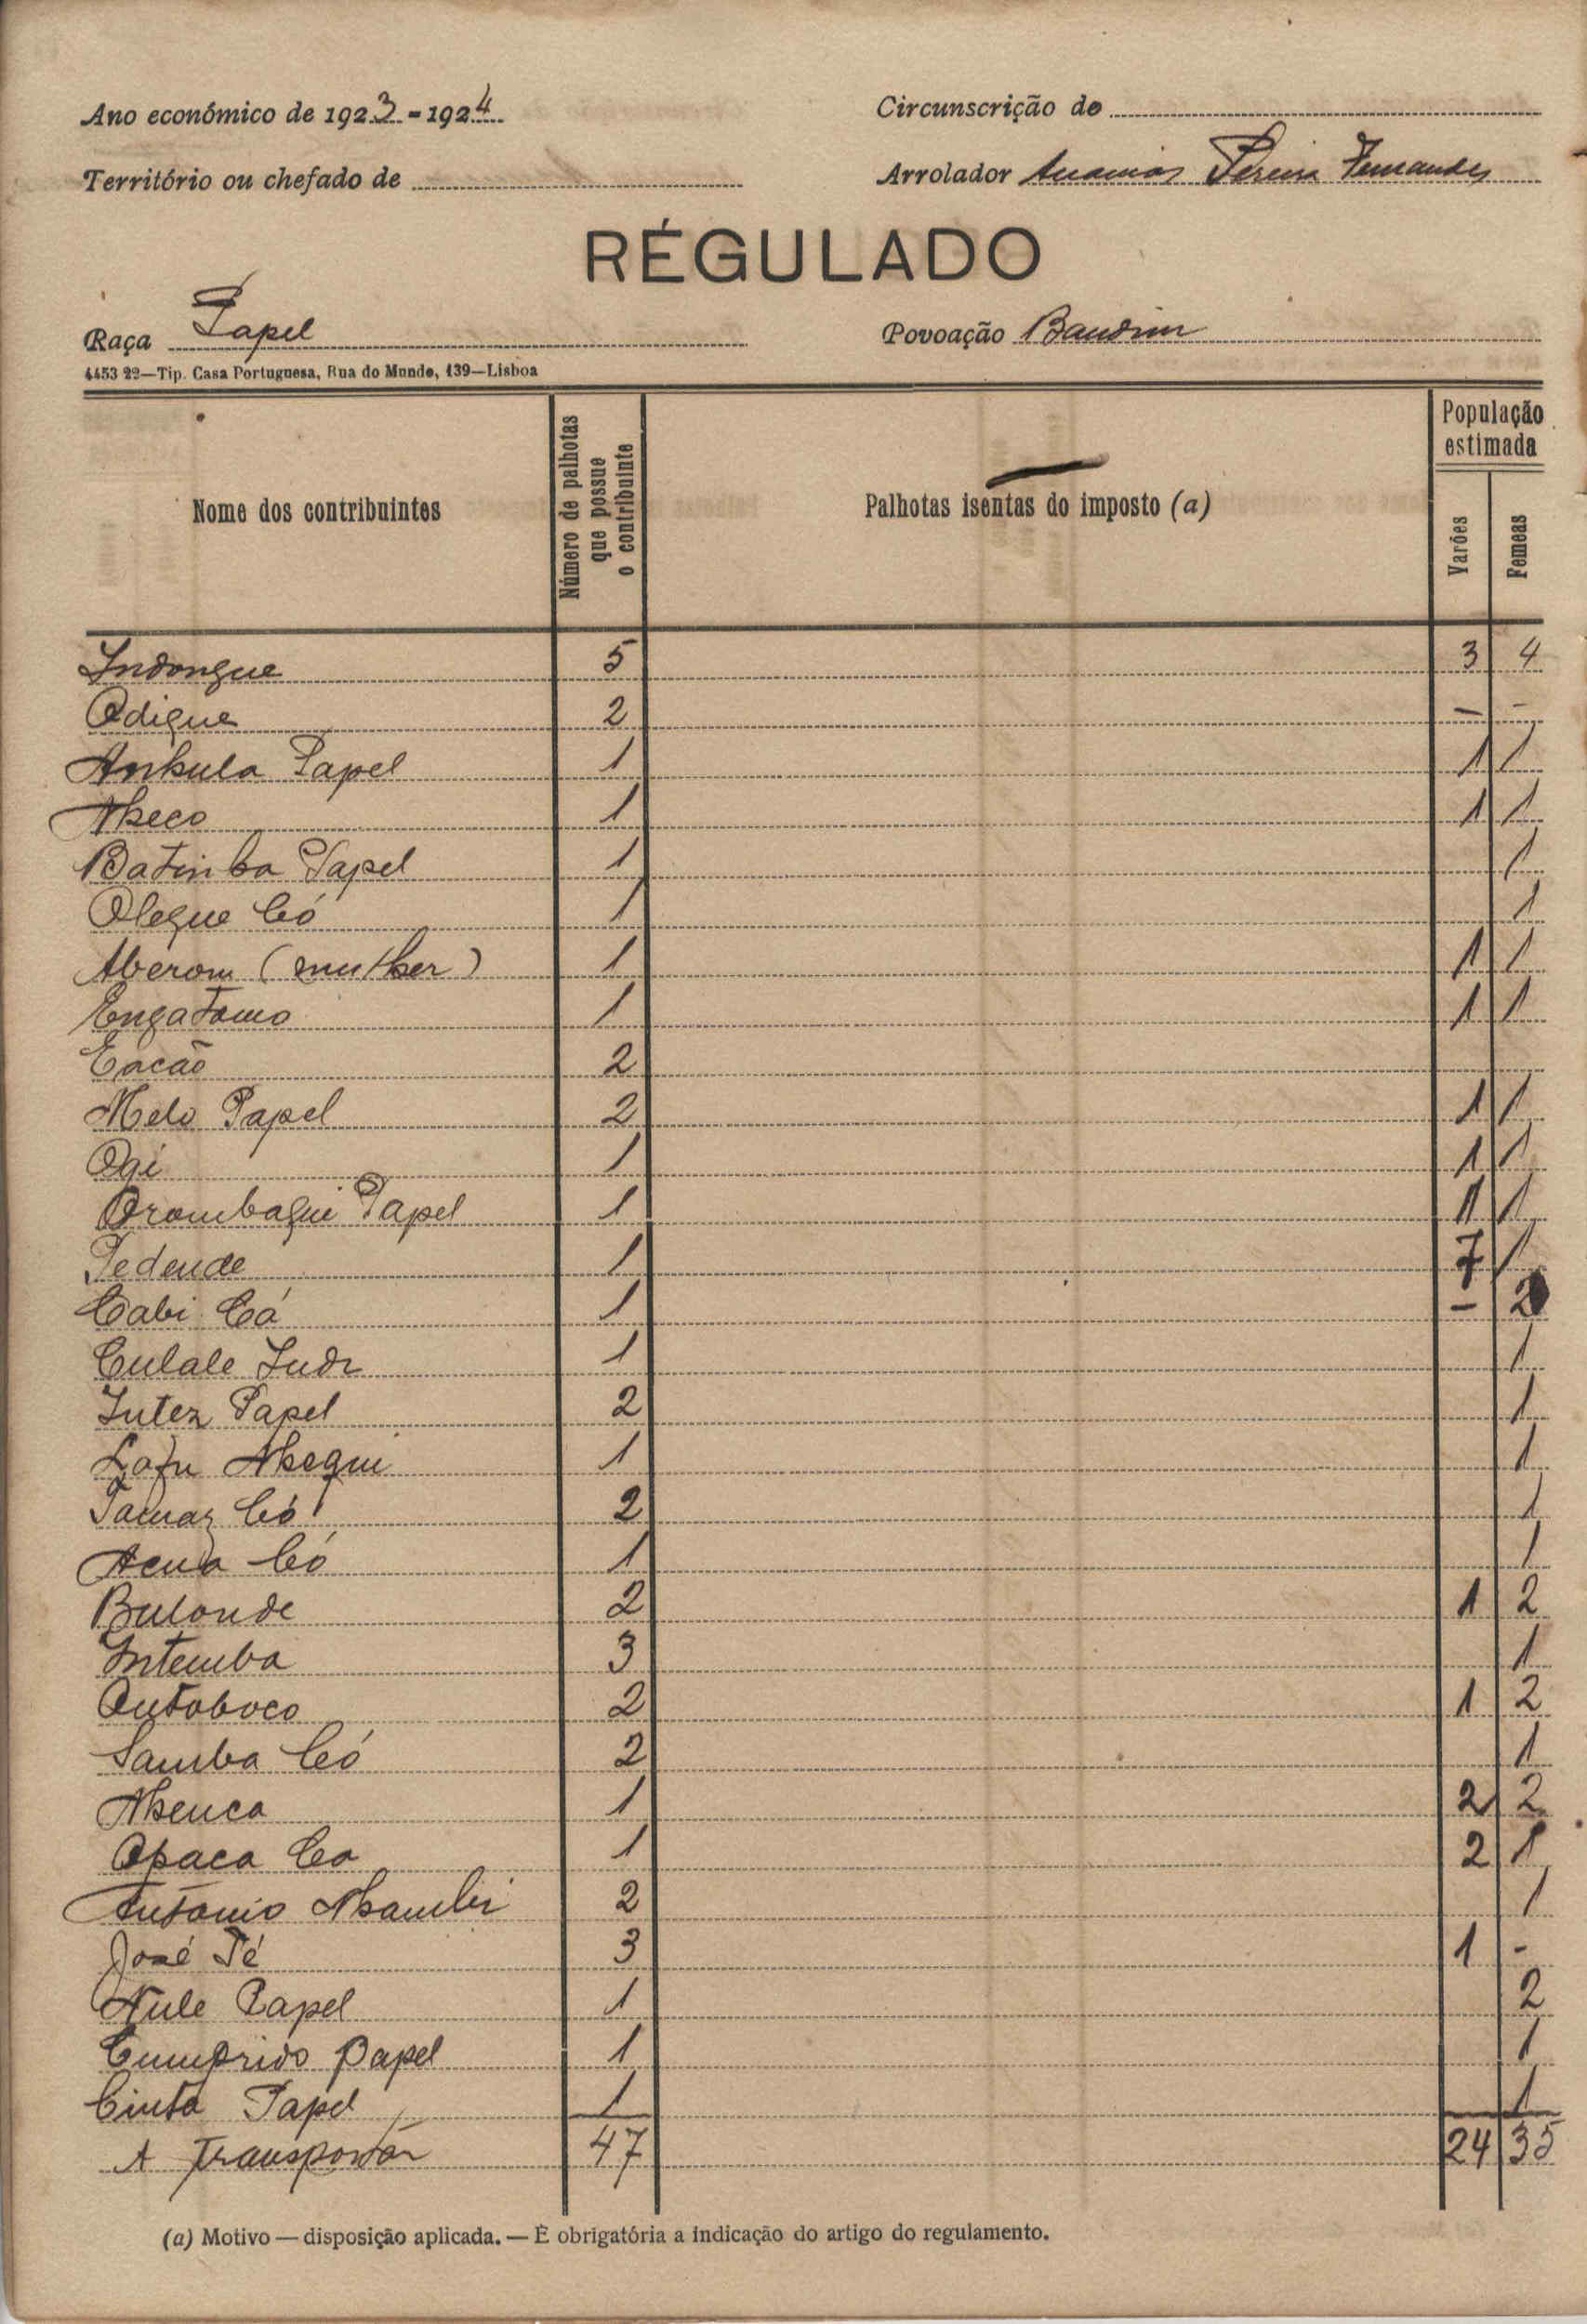 Ano económico de 1923-1924 Circunscrição de
Território ou chefado de Arrolador Ananias Pereira Fernandes
RÉGULADO
Raça Papel Povoação Bandim
4453 22—Tip. Casa Portuguesa, Rua do Mundo, 139—Lisboa
Nome dos contribuintes Número de palhotas que possue o contribuinte Palhotas isentas do imposto (a) População estimada Varões Femeas
Indongue 5 3 4
Odique 2 - -
Ankula Papel 1 1 1
Nheco 1 1 1
Batimba Papel 1 1
Olegue Có 1 1
Aberom (mulher) 1 1 1
Engatomo 1 1 1
Cacão 2
Melo Papel 2 1 1
Ogi 1 1 1
Orombagui Papel 1 1 1
Pedende 1 7 1
Cabi Cá 1 - 2
Culale Indi 1 1
Intez Papel 2 1
Nhaqui 1 1
Có 2 1
Có 1 1
Bulonde 2 1 2
Intemba 3 1
Outoboco 2 1 2
Samba Có 2 1
Nhenca 1 2 2
Opaca Co 1 2 1
Antonio Nhambi 2 1
José Té 3 1 -
Nule Papel 1 2
Cumprido Papel 1 1
Cinta Papel 1 1
A Transportar 47 24 35
(a) Motivo — disposição aplicada. — É obrigatória a indicação do artigo do regulamento.